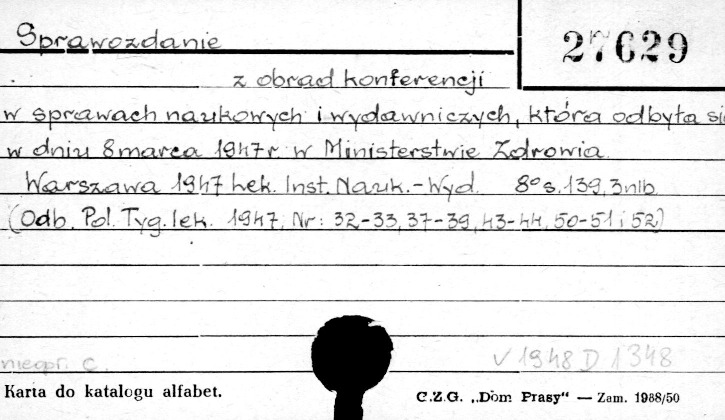 Sprawozdanie
27629
z obrad konferencji
w sprawach naukowych i wydawniczych, która odbyła się
w dniu 8 marca 1947 r. w Ministerstwie Zdrowia.
Warszawa 1947 Lek. Inst. Nauk.-Wyd. 8° s. 139, 3 nlb.
(Odb. Pol. Tyg. lek. 1947, Nr: 32-33, 37-39, 43-44, 50-51 i 52)
nieopr. C.
V 1948 D 1348
Karta do katalogu alfabet.
C.Z.G. „Dom Prasy" — Zam. 1988/50